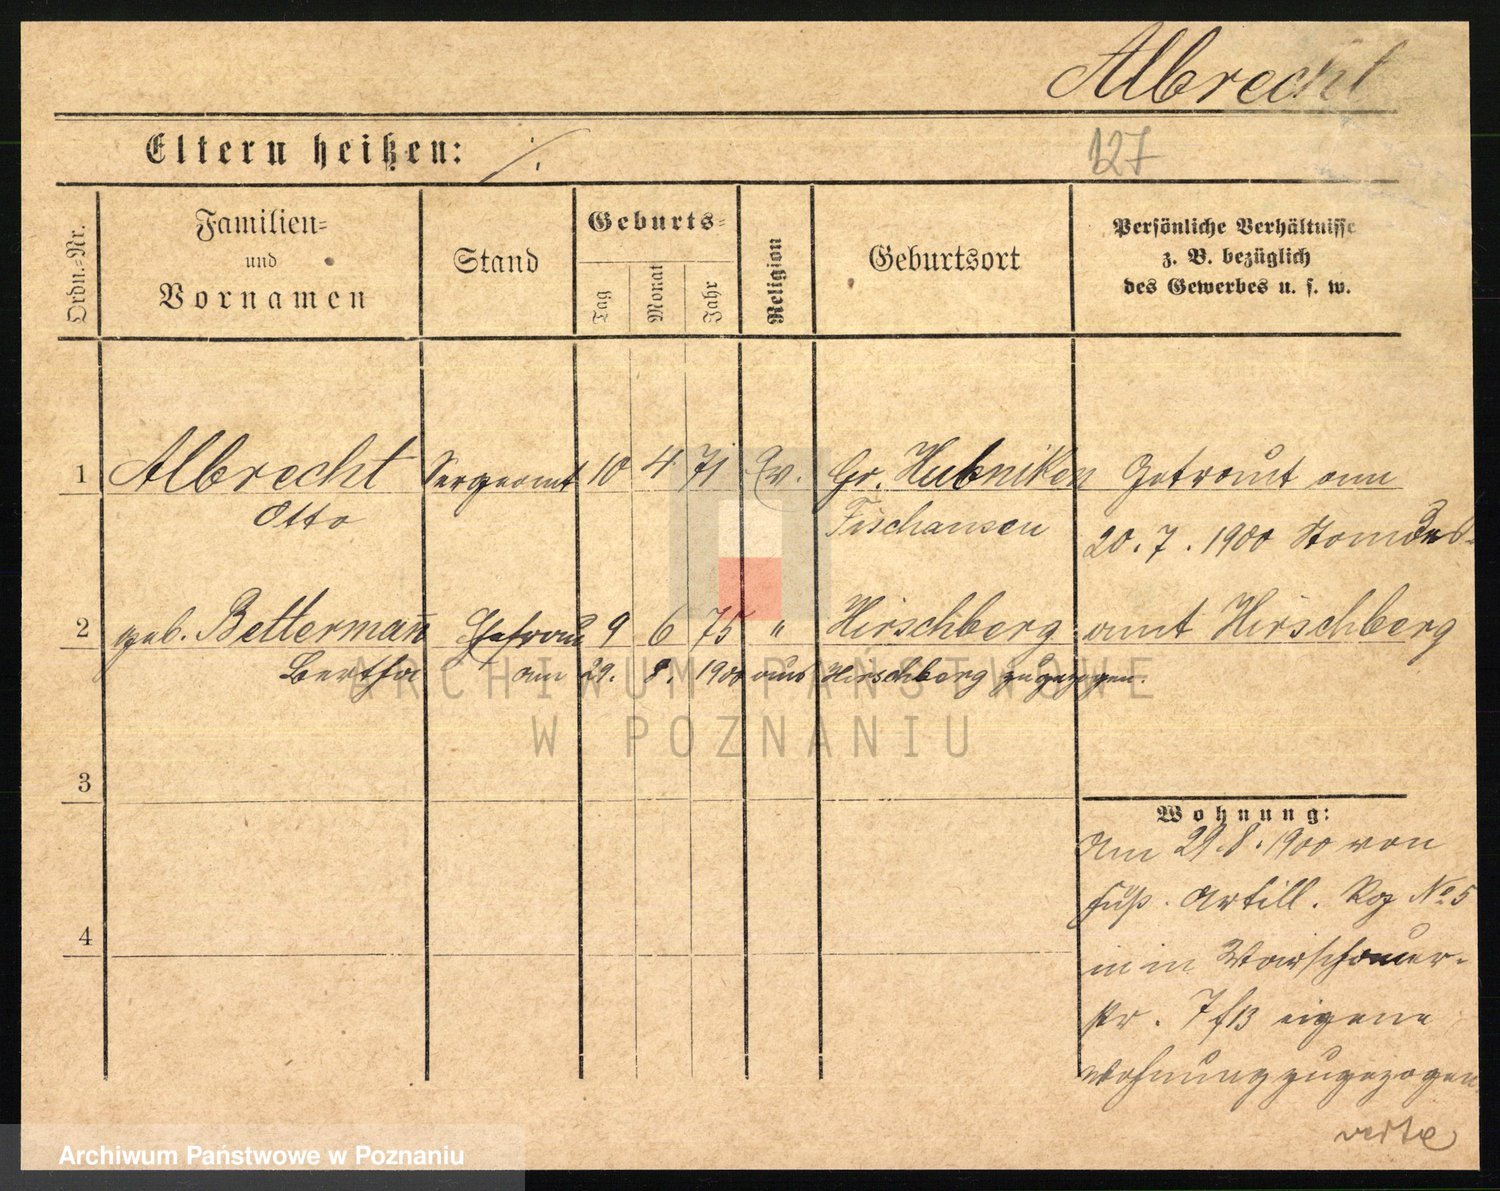 Albrecht
Eltern heißen: ./.
127
Ordn.-Nr.
Familien-
und
Vornamen
Stand
Geburts-
Tag
Monat
Jahr
Religion
Geburtsort
Persönliche Verhältnisse
z. B. bezüglich
des Gewerbes u. s. w.
1 Albrecht Sergeant 10 4 71 Ev. Gr. Hubniken Getraut am
Otto Fischausen 20. 7. 1900 Standes-
2 geb. Bettermann Ehefrau 9 6 75 " Hirschberg amt Hirschberg
Bertha am 29. 8. 1900 aus Hirschberg zugezogen.
3
4
Wohnung:
Am 29.8.1900 von
Fuß. Artill. Rg No 5
in Warschauer-
str. 7 f13 eigene
Wohnung zugezogen
verte
ARCHIWUM PAŃSTWOWE
W POZNANIU
Archiwum Państwowe w Poznaniu